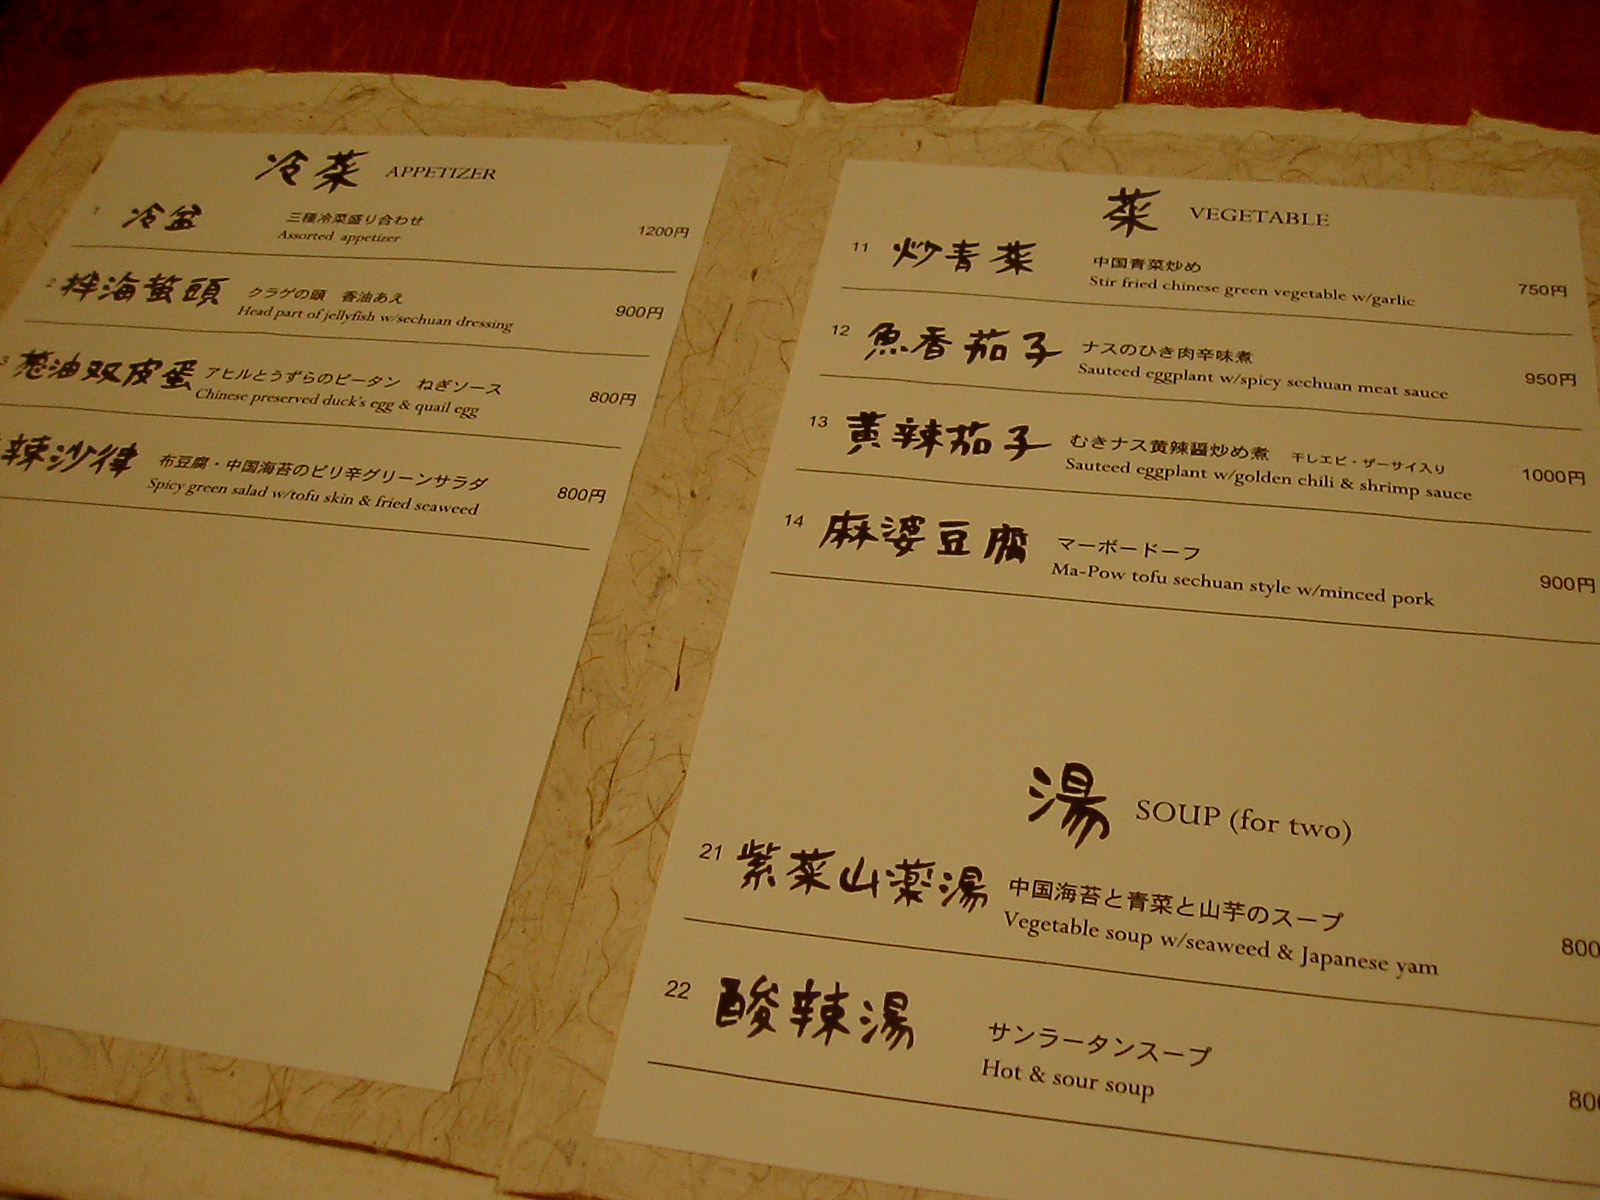 冷菜 APPETIZER
1 冷盆 三種冷菜盛り合わせ 1200円
Assorted appetizer
2 拌海蜇頭 クラゲの頭 香油あえ 900円
Head part of jellyfish w/sechuan dressing
3 葱油双皮蛋 アヒルとうずらのピータン ねぎソース 800円
Chinese preserved duck's egg & quail egg
辣沙律 布豆腐・中国海苔のピリ辛グリーンサラダ 800円
Spicy green salad w/tofu skin & fried seaweed
菜 VEGETABLE
11 炒青菜 中国青菜炒め 750円
Stir fried chinese green vegetable w/garlic
12 魚香茄子 ナスのひき肉辛味煮 950円
Sauteed eggplant w/spicy sechuan meat sauce
13 黄辣茄子 むきナス黄辣醤炒め煮 干しエビ・ザーサイ入り 1000円
Sauteed eggplant w/golden chili & shrimp sauce
14 麻婆豆腐 マーボードーフ 900円
Ma-Pow tofu sechuan style w/minced pork
湯 SOUP (for two)
21 紫菜山薬湯 中国海苔と青菜と山芋のスープ 800
Vegetable soup w/seaweed & Japanese yam
22 酸辣湯 サンラータンスープ 800
Hot & sour soup